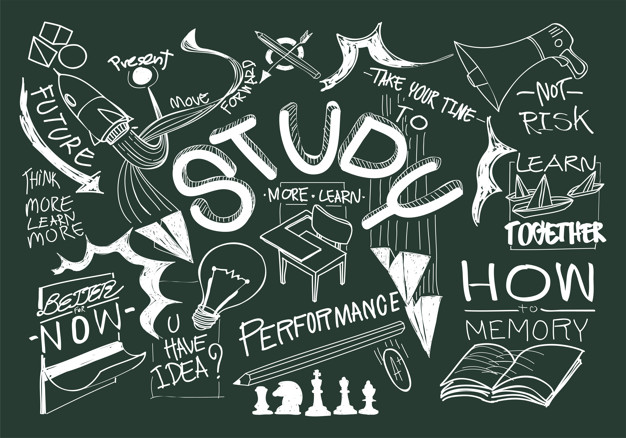 Present
MOVE
FORWARD
FUTURE
THINK
MORE
LEARN
MORE
STUDY
MORE LEARN
TAKE YOUR TINE
TO
NOT
RISK
LEARN
TOGETHER
BETTER
FOR
NOW
U
HAVE
IDEA?
PERFORMANCE
HOW
to
MEMORY